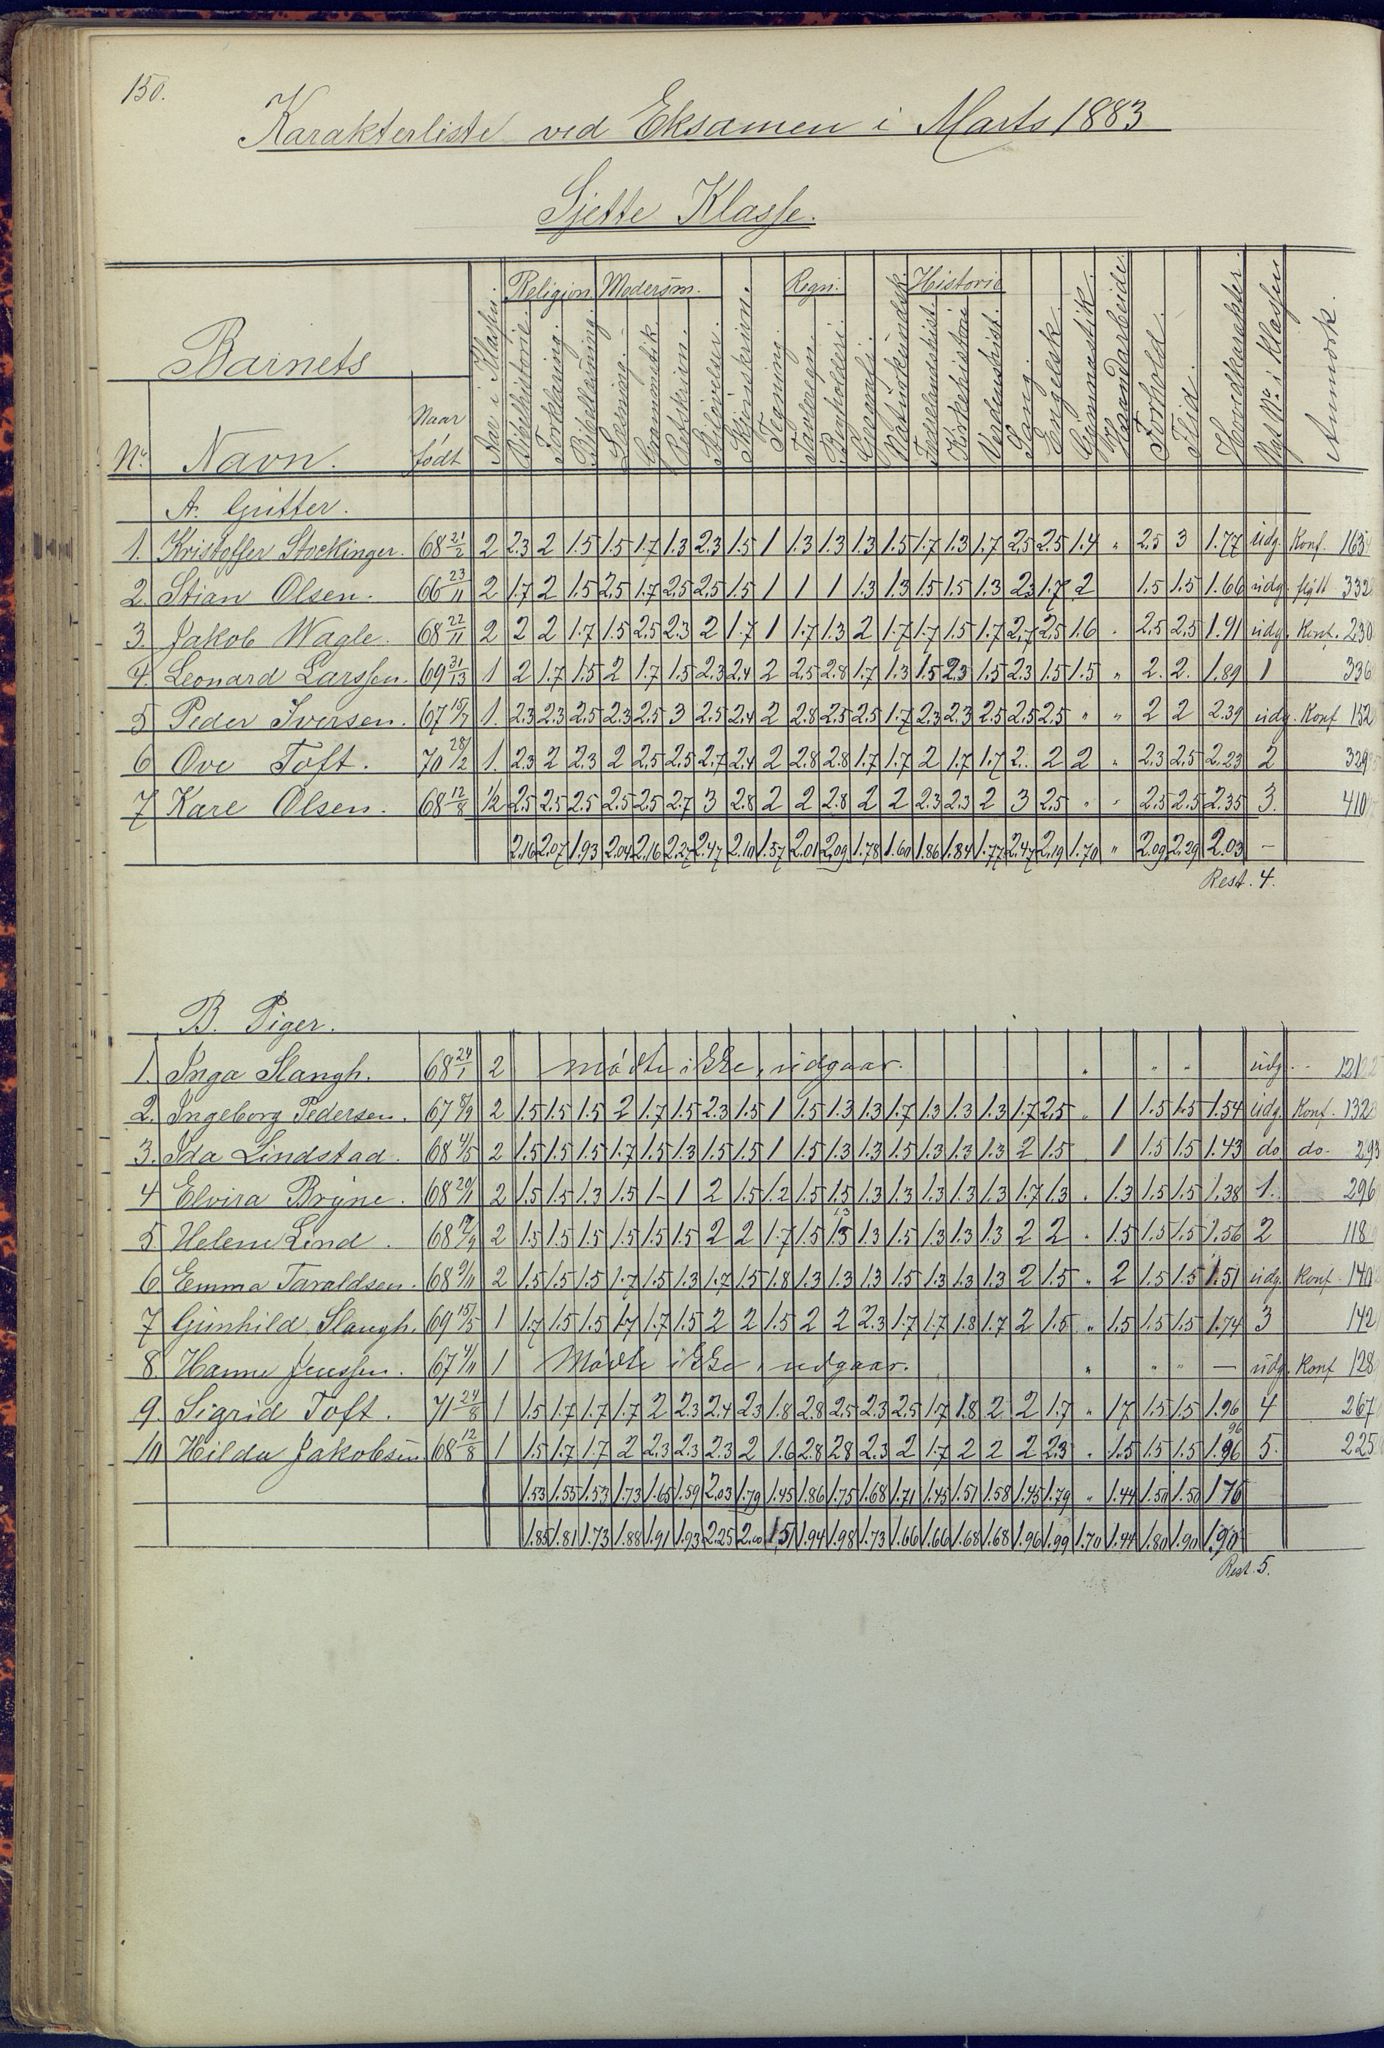 150.
Karakterliste ved Eksamen i Marts 1883
Sjette Klasse.
Religion. Modersm. Regn. Historie
Barnets
No. Navn. Naar født Aar i Klassen. Bibelhistorie. Forklaring. Bibellæsning. Læsning. Grammatik Retskrivn. Stiløvelser. Skjønskrivn. Tegning. Tavleregn. Bogholderi. Geografi. Naturkundsk. Fædrelandshist. Kirkehistorie Verdenshist. Sang. Engelsk. Gymnastik. Haandarbeide. Forhold. Flid. Hovedkarakter. Nyt No. i Klassen Anmærk.
A. Gutter.
1. Kristoffer Stockinger. 68 21/2 2 2.3 2 1.5 1.5 1.7 1.3 2.3 1.5 1 1.3 1.3 1.3 1.5 1.7 1.3 1.7 2.5 2.5 1.4 " 2.5 3 1.77 udg. Konf. 165
2. Stian Olsen. 66 23/11 2 1.7 2 1.5 2.5 1.7 2.5 2.5 1.5 1 1 1 1.3 1.3 1.5 1.5 1.3 2.3 1.7 2 1.5 1.5 1.66 udg. flytt 332
3. Jakob Wagle. 68 22/11 2 2 2 1.7 1.5 2.5 2.3 2 1.7 1 1.7 1.3 2 1.7 1.7 1.5 1.7 2.7 2.5 1.6 " 2.5 2.5 1.91 udg. Konf. 230
4. Leonard Larssen. 69 31/13 1. 2 1.7 1.5 2 1.7 1.5 2.3 2.4 2 2.5 2.8 1.7 1.3 1.5 2.3 1.5 2.3 1.5 1.5 " 2. 2. 1.89 1 336
5 Peder Iversen. 67 15/7 1. 2.3 2.3 2.5 2.3 2.5 3 2.5 2.4 2 2.8 2.5 2.5 1.7 2.3 2.3 2.5 2.5 2.5 " " 2 2 2.39 udg. Konf 152
6 Ove Toft. 70 28/2 1. 2.3 2 2.3 2 2.5 2.5 2.7 2.4 2 2.8 2.8 1.7 1.7 2 1.7 1.7 2. 2 2 " 2.3 2.5 2.23 2 329
7 Kare Olsen. 68 12/8 1/2 2.5 2.5 2.5 2.5 2.5 2.7 3 2.8 2 2 2.8 2 2 2.3 2.3 2 3 2.5 " " 2.5 2.5 2.35 3. 410
2.16 2.07 1.93 2.04 2.16 2.27 2.47 2.10 1.57 2.01 2.09 1.78 1.60 1.86 1.84 1.77 2.47 2.19 1.70 " 2.09 2.29 2.03 –
Rest. 4.
B. Piger.
1. Inga Slangh. 68 24/1 2 mødte ikke, udgaar. " " " udg. 121
2. Ingeborg Pedersen. 67 8/9 2 1.5 1.5 1.5 2 1.7 1.5 2.3 1.5 1 1.5 1.3 1.3 1.7 1.3 1.3 1.3 1.7 2.5 " 1 1.5 1.5 1.54 udg. Konf. 132
3. Ida Lindstad. 68 4/5 2 1.5 1.5 1.5 1.7 1.5 1.3 1.5 1.5 1 1.5 1.3 1.3 1.5 1.3 1.3 1.3 2 1.5 " 1 1.5 1.5 1.43 do do. 293
4 Elvira Bryne. 68 29/11 2 1.5 1.5 1.3 1.5 1 1 2 1.5 1.2 1.5 1.5 1.3 1.3 1.3 1.3 1.3 1.7 1.3 " 1.3 1.5 1.5 1.38 1. 296
5 Helene Lind. 68 17/9 2 1.5 1.5 1.5 1.5 1.5 1.5 2 2 1.7 1.5 1.3 1.3 1.5 1.3 1.3 1.3 2 2 " 1.5 1.5 1.5 1.56 2 118
6 Emma Taraldsen. 68 9/11 2 1.5 1.5 1.5 1.7 1.5 1.3 1.7 1.5 1.8 1.3 1.3 1.3 1.5 1.3 1.3 1.3 2 1.5 " 2 1.5 1.5 1.51 udg. Konf 140
7 Gunhild Slangh. 69 15/5 1 1.7 1.5 1.5 1.7 1.7 1.5 2 2 1.5 2 2 2.3 1.7 1.7 1.8 1.7 2 1.5 " 1.5 1.5 1.5 1.74 3 142
8. Hanne Jenssen. 67 4/11 1 Mødte ikke, udgaar. " " " – udg. Konf 128
9. Sigrid Toft. 71 24/8 1 1.5 1.7 1.7 1.7 2 2.3 2.4 2.3 1.8 2.8 2.5 2.3 2.5 1.7 1.8 2 2 1.7 " 1.7 1.5 1.5 1.96 4 267
10 Hilda Jakobsen 68 12/8 1 1.5 1.7 1.7 2 2.3 2.3 2.3 2 1.6 2.8 2.8 2.3 2 1.7 2 2 2 2.3 " 1.5 1.5 1.5 1.96 5. 225
1.53 1.55 1.53 1.73 1.65 1.59 2.03 1.79 1.45 1.86 1.75 1.68 1.71 1.45 1.51 1.58 1.45 1.79 " 1.44 1.50 1.50 1.76
1.85 1.81 1.73 1.88 1.91 1.93 2.25 2.00 1.51 1.94 1.98 1.73 1.66 1.66 1.68 1.68 1.96 1.99 1.70 1.44 1.80 1.90 1.90
Rest. 5.